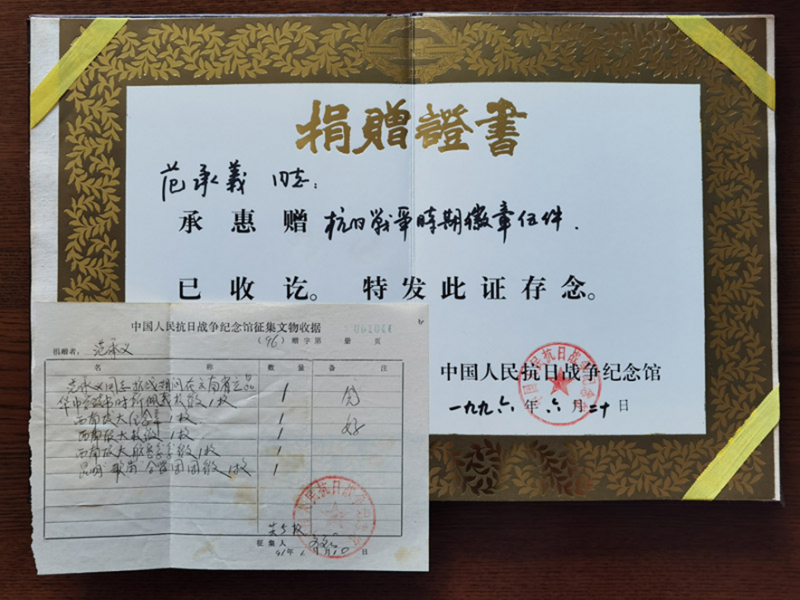 捐贈證書
范承義 同志：
承惠赠 抗日战争時期徽章伍件.
已收讫。特发此证存念。
中国人民抗日战争纪念馆
一九九六年六月二十日
中国人民抗日战争纪念馆征集文物收据
(96) 赠字第 册 页
捐赠者： 范承义
名 称 数 量 备 注
范承义同志抗战期间在云南省
1
西南联大纪念章1枚 1
西南联大校徽1枚 1 好
西南联大 徽1枚 1
昆明 歌 合唱团团徽1枚 1
共5枚
征集人
96年 月 日